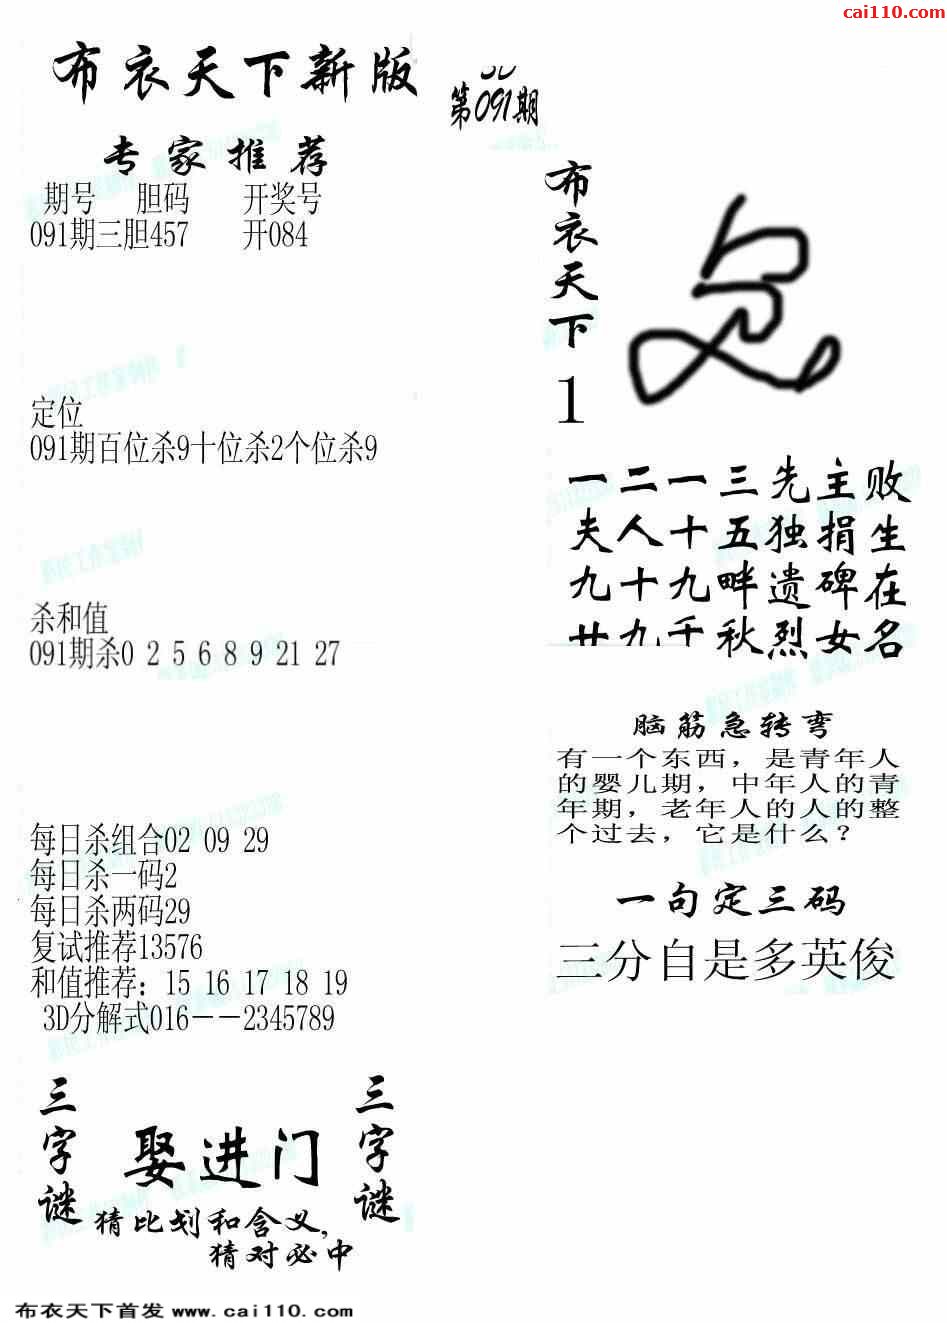 cai110.com
布衣天下新版
3D
第091期
专家推荐
期号 胆码 开奖号
091期三胆457 开084
定位
091期百位杀9十位杀2个位杀9
杀和值
091期杀0 2 5 6 8 9 21 27
每日杀组合02 09 29
每日杀一码2
每日杀两码29
复试推荐13576
和值推荐：15 16 17 18 19
3D分解式016－－2345789
三字谜
娶进门
三字谜
猜比划和含义，
猜对必中
布衣天下
1
一二一三先主败
夫人十五独捐生
九十九畔遗碑在
廿九千秋烈女名
脑筋急转弯
有一个东西，是青年人
的婴儿期，中年人的青
年期，老年人的人的整
个过去，它是什么？
一句定三码
三分自是多英俊
布衣天下首发 www.cai110.com